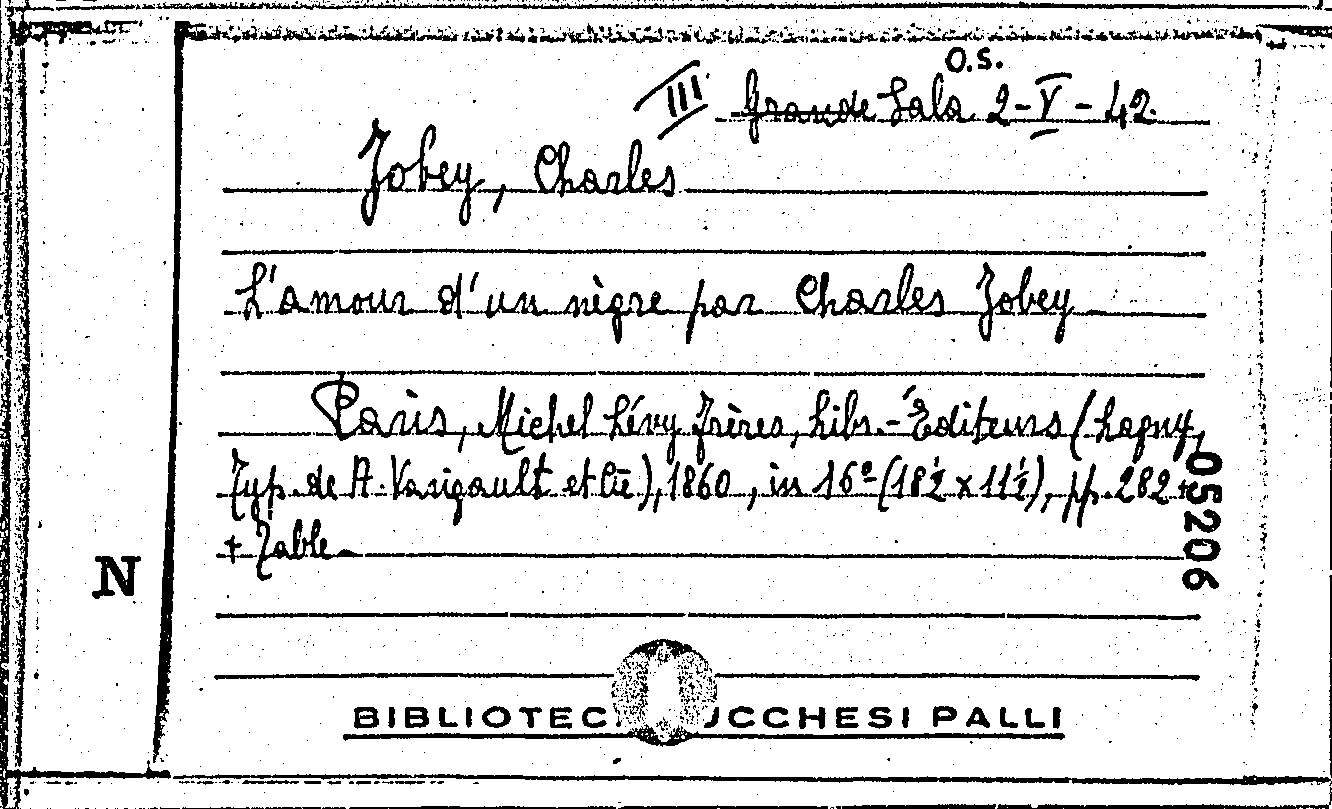 O.S.
III Grande Sala 2-V-42.
Jobey, Charles
L'amour d'un nègre par Charles Jobey
Paris, Michel Lévy frères, Libr.-Éditeurs (Lagny,
Typ. de A. Varigault et Cie), 1860, in 16º (18½ x 11½), pp. 282 +
+ Table
05206
N
BIBLIOTEC UCCHESI PALLI